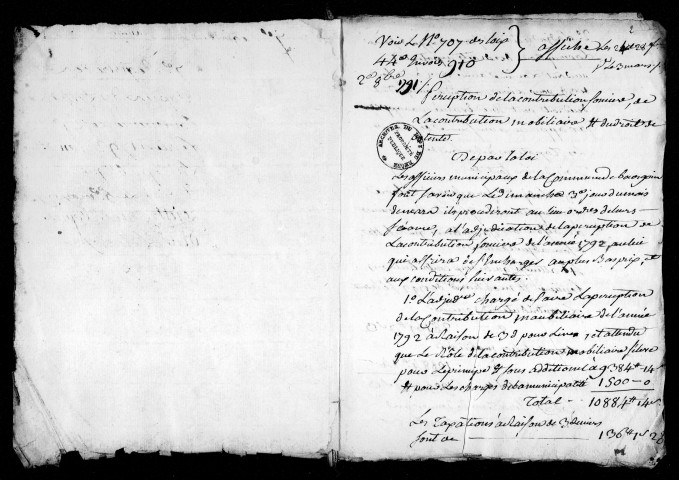 2
Voir le N° 707 des loix
44e envoi 910
affiché les 24 et 28
le 3 mars
2e 8bre 1791
perception de la contribution fonciere de
La contribution mobiliaire et du droit de
patente
De par la loi
Les officiers municipaux de la Commune de bourgoin
font savoir que Le dimanche 3e jour du mois
de mars ils procederont au lieu ordre de leurs
seances, a l'adjudication de la perception de
La contribution fonciere de l'année 1792 a celui
qui offrira de s'en charger au plus Bas prix, et
aux conditions suivantes.
1° L'adjudre chargé de faire La perception
de la Contribution mobiliaire de l'année
1792 à Raison de 3d pour Livre, et attendu
que Le Rôle de la contribution mobiliaire
pour Le principal et sous additionel a 9384tt 14s
et pour Les charges de la municipalité 1500 - 0
Total - 10884tt 14s
Les Taxations a Raison de 3 deniers
sont de 136tt 1s 2d